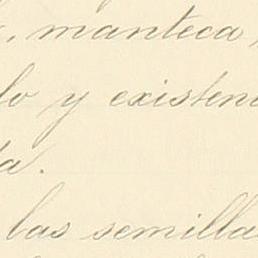 , manteca
lo y existen
ta.
las semilla